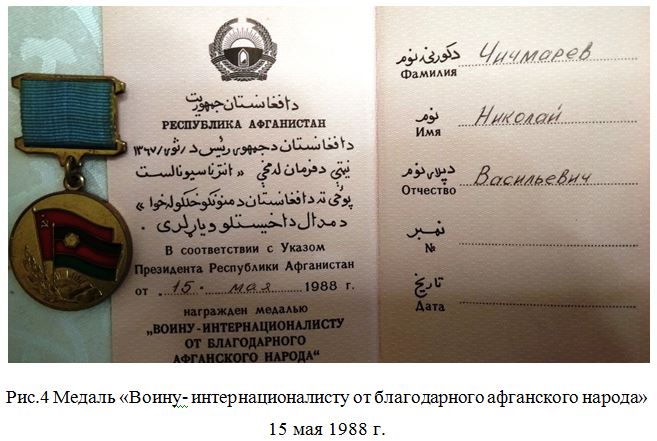 د افغانستان جمهوریت
РЕСПУБЛИКА АФГАНИСТАН
د افغانستان د جمهوری رئیس د / ثور / ۱۳۶۷
نیټې د فرمان له مخې « انترناسیونالست
پوځي ته د افغانستان د منونکو خلکو له خوا »
د مدال د اخیستلو ویاړ لري .
В соответствии с Указом
Президента Республики Афганистан
от „15“ мая 1988 г.
награжден медалью
„ВОИНУ-ИНТЕРНАЦИОНАЛИСТУ
ОТ БЛАГОДАРНОГО
АФГАНСКОГО НАРОДА“
د کورنۍ نوم Чичмарев
Фамилия
نوم Николай
Имя
د پلار نوم Васильевич
Отчество
نمبر
№
تاریخ
Дата
Рис.4 Медаль «Воину- интернационалисту от благодарного афганского народа»
15 мая 1988 г.